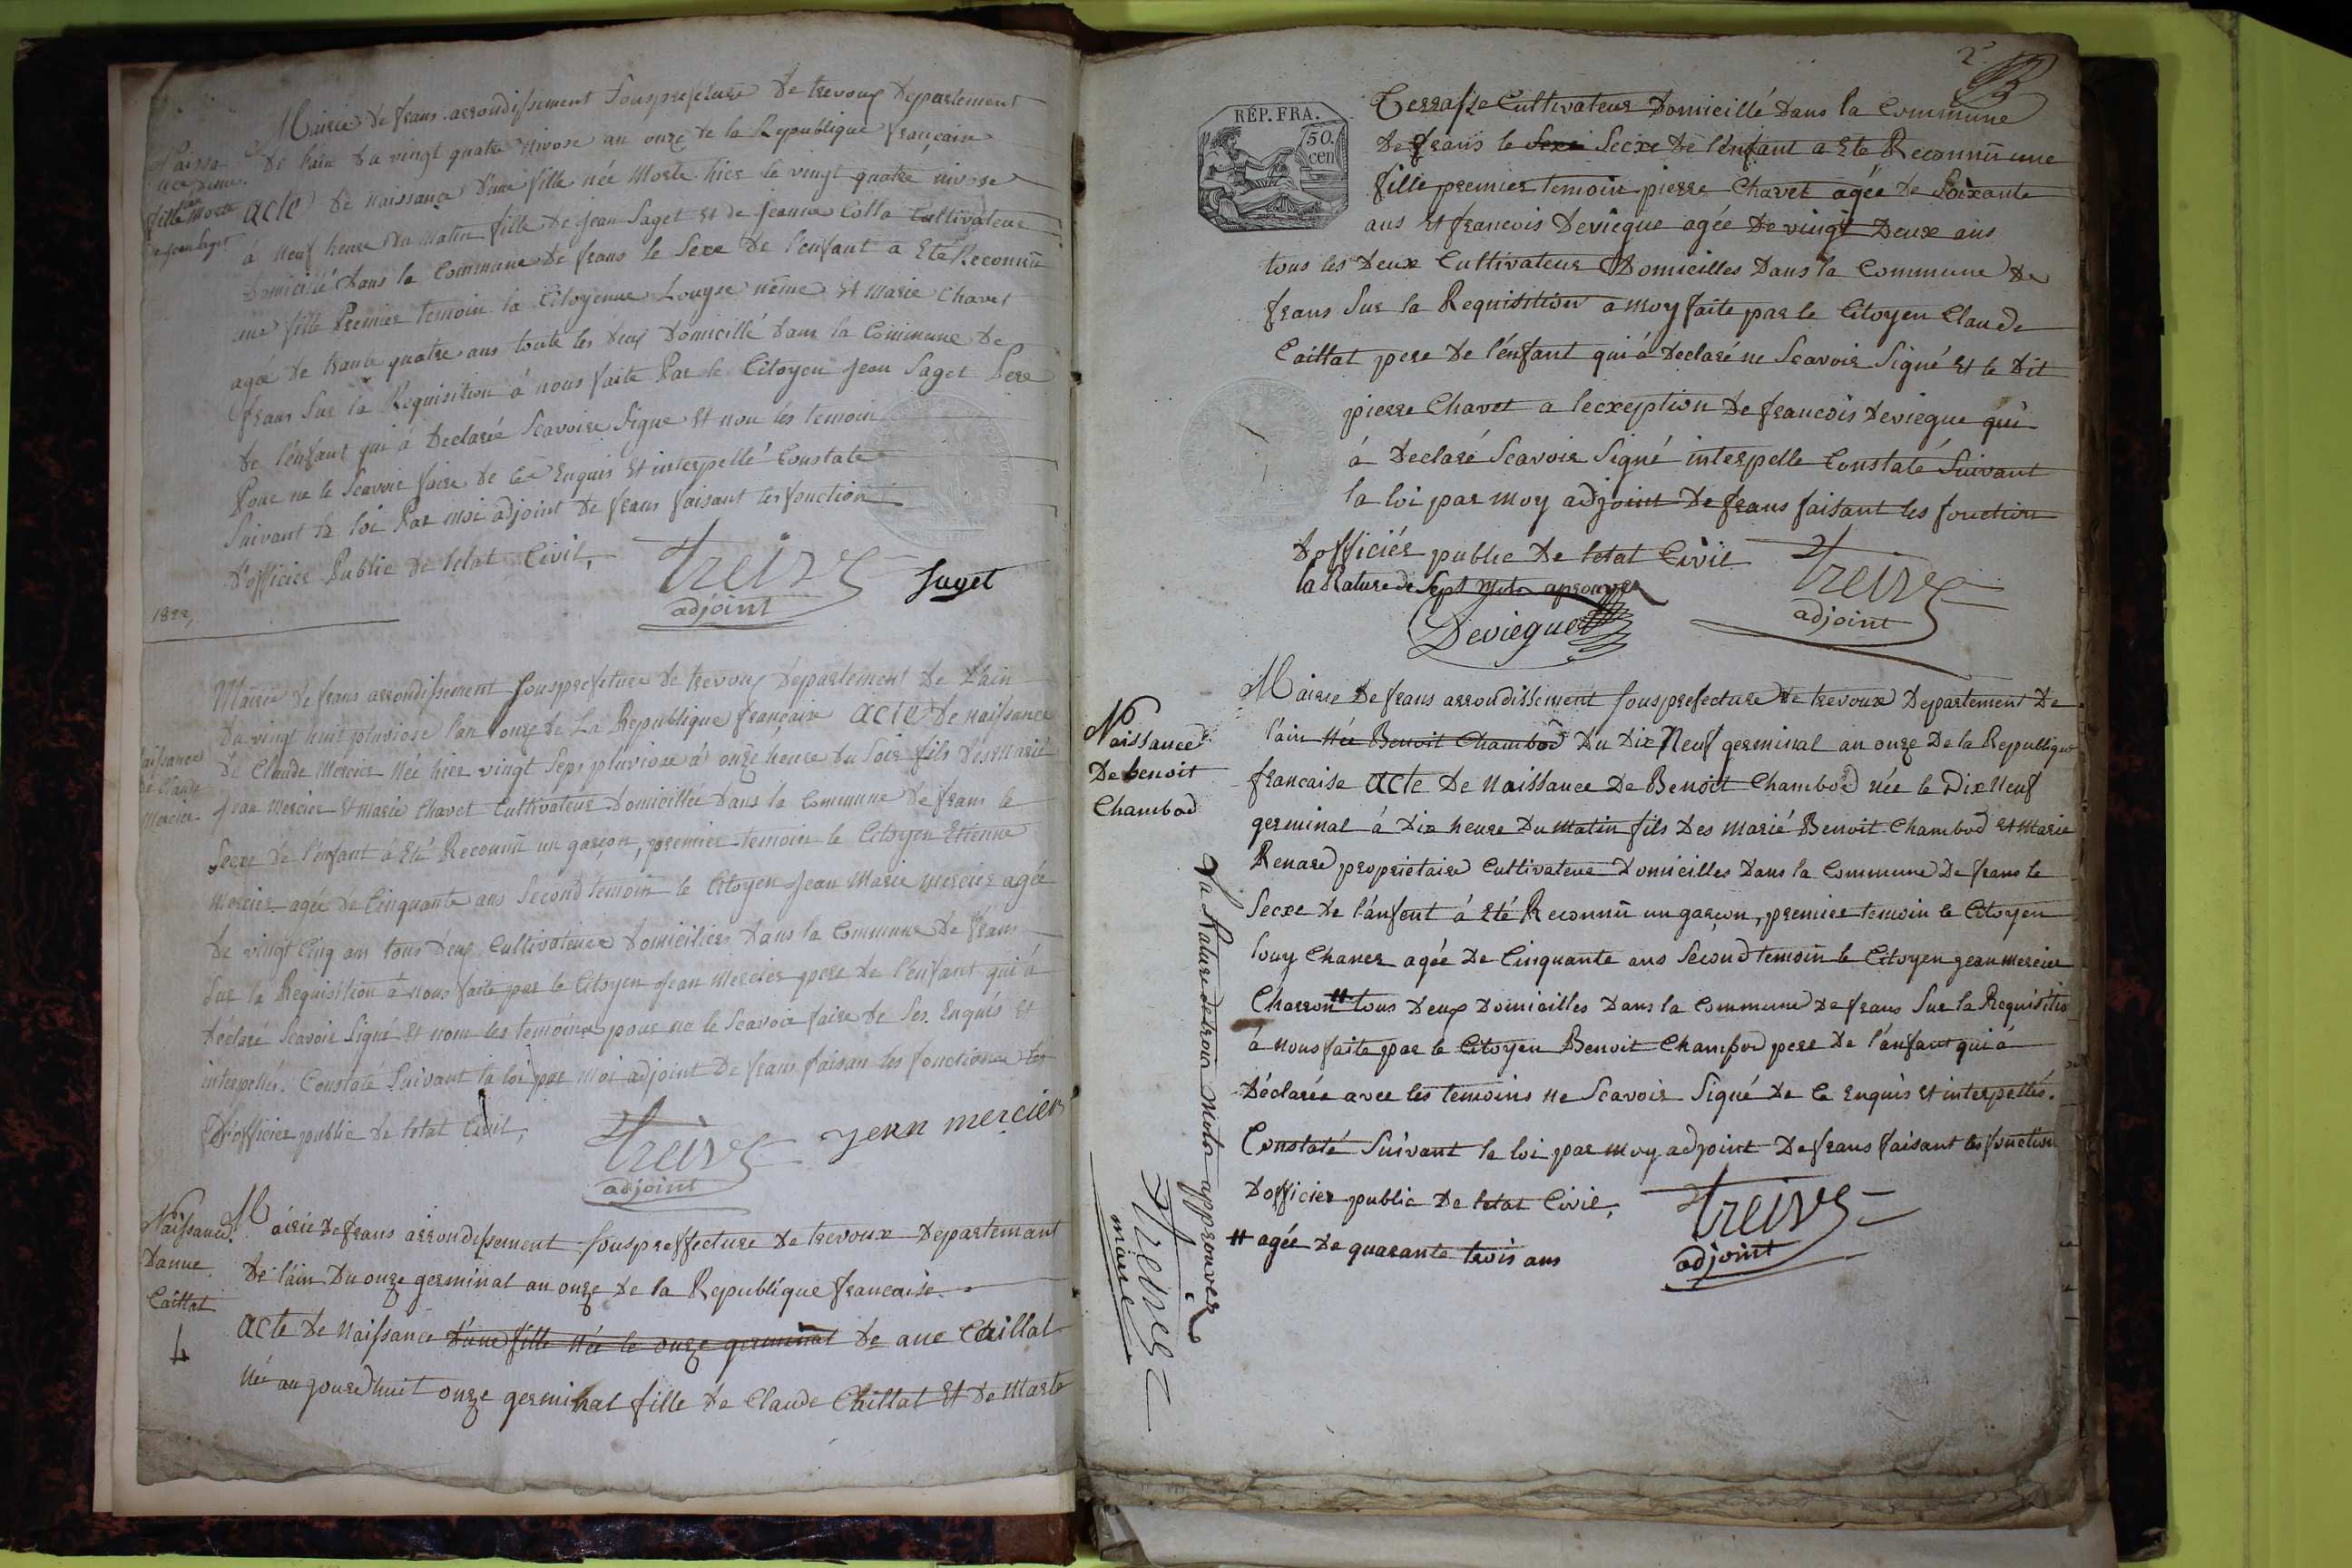 Mairie De frans arrondissement Sousprefeture De trevoux Departement
De l'ain Du vingt quatre nivose an onze de la Republique française
Naissa
nce d'une
fille morte
de jean Saget
acte De naissance d'une fille née Morte hier le vingt quatre nivose
à neuf heure Du Matin fille De jean Saget Et de jeanne Colla Cultivateur
Domicilié Dans la Commune De frans le Sexe De l'enfant a Eté Reconnu
une fille Premier temoin la Citoyenne Louyse même Et Marie Chavet
agée De trante quatre ans toute les deux Domicillé dans la Commune De
frans Sur la Requisition à nous faite Par le Citoyen Jean Saget Pere
De l'enfant qui à Declarée Scavoire Signe Et non les temoin
Pour ne le Scavoir faire de Ce Enquis Et interpellé Constate
Suivant la loi Par moi adjoint De frans faisant les fonction
D'officier Public De letat Civil,
Treive
adjoint
Saget
1822,
Mairie De frans arrondissement Sousprefeture de trevoux Departement De L'ain
Du vingt huit pluviose l'an onze de La Republique française acte De naissance
Naissance
de Claude
Mercier
De Claude Mercier Née hier vingt Sept pluviose à onze heure Du Soir fils Des Marié
Jean Mercier Et Marie Chavet Cultivateur Domicillée Dans la Commune De frans le
Secxe De l'enfant à Eté Reconnu un garçon, premier temoin le Citoyen Etienne
Mercier agée De Cinquante ans Second temoin le Citoyen Jean Marie Mercier agée
De vingt Cinq ans tous Deux Cultivateurs Domiciliés Dans la Commune De frans
Sur la Requisition à nous faite par le Citoyen Jean Mercier pere De l'enfant qui à
Declaré Scavoir Signé Et nom les temoins pour ne le Scavoir faire De Ses Enquis Et
interpellés. Constaté Suivant la loi par moi adjoint De frans faisan les fonctions
D'officier public De letat Civil,
Treive
adjoint
jean mercier
Naissance
Danne
Caillat
4
Mairie De frans arrondissement Souspreffecture De trevoux Departemant
De l'ain Du onze germinal an onze De la Republique francaise
acte De Naissance D'une fille née le onze germinal De ane Caillat
Née au jourdhuit onze germinal fille De Claude Caillat Et De Marte
2e
RÉP. FRA.
50.
cen
Terrasse Cultivateur Domicillé Dans la Commune
De frans le Sexe Secxe De l'enfant a Ete Reconnu une
fille premier temoin pierre Chavet agée De Soixante
ans Et francois Deviegue agée De vingt Deux ans
tous les Deux Cultivateur Domicilles Dans la Commune De
frans Sur la Requisition a moy faite par le Citoyen Claude
Caillat pere De l'enfant qui à Declaré ne Scavoir Signé Et le Dit
pierre Chavet a lecxeption De francois Deviegue qui
à Declaré Scavoir Signé interpelle Constaté Suivant
la loi par moy adjoint De frans faisant les fonction
Dofficiér public De letat Civil
la Rature de Sept Mots aprouver
Treive
adjoint
Deviegue
Naissance
De benoit
Chambod
Mairie De frans arrondissement Sousprefecture De trevoux Departement De
l'ain Née Benoit Chambod Du Dix Neuf germinal an onze De la Republique
francaise acte De Naissance De Benoit Chambod née le Dix Neuf
germinal à Dix heure Du Matin fils Des Marié Benoit Chambod Et Marie
Renard proprietaire Cultivateur Domicilles Dans la Commune De frans le
Secxe De l'anfent à Eté Reconnu un garçon, premier temoin le Citoyen
louy Chaner agée De Cinquante ans Second temoin le Citoyen jean mercier
Charron # tous Deux Domicilles Dans la Commune De frans Sur la Requisitio
à nous faite par le Citoyen Benoit Chambod pere De l'anfant qui à
Déclarée avec les temoins ne Scavoir Signé De Ce Enquis Et interpellés.
Constaté Suivant la loi par moy adjoint De frans faisant les fonction
Dofficier public De letat Civil,
# agée De quarante trois ans
Treive
adjoint
La Rature de trois mots approuver
Treive
maire